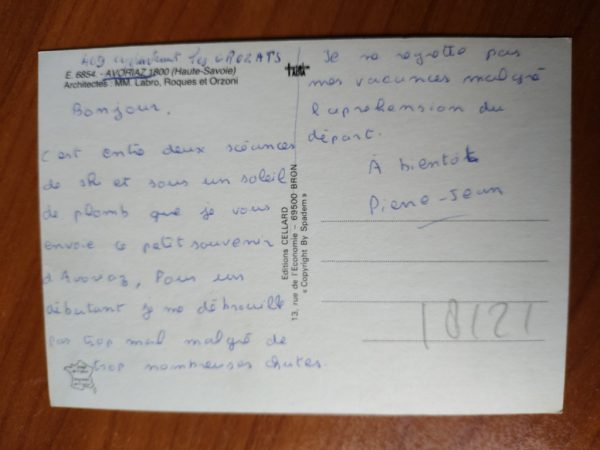 Les CROZATS
E. 6854. - AVORIAZ 1800 (Haute-Savoie)
Architectes : MM. Labro, Roques et Orzoni
Bonjour,
C'est entre deux séances
de ski et sous un soleil
de plomb que je vous
envoie ce petit souvenir
d'Avoriaz, Pour un
débutant je me débrouille
pas trop mal malgré de
trop nombreuses chutes.
Editions CELLARD
13, rue de l'Economie - 69500 BRON
« Copyright By Spadem »
Je ne regrette pas
mes vacances malgré
l'aprehension du
départ.
À bientôt
Pierre-Jean
18121